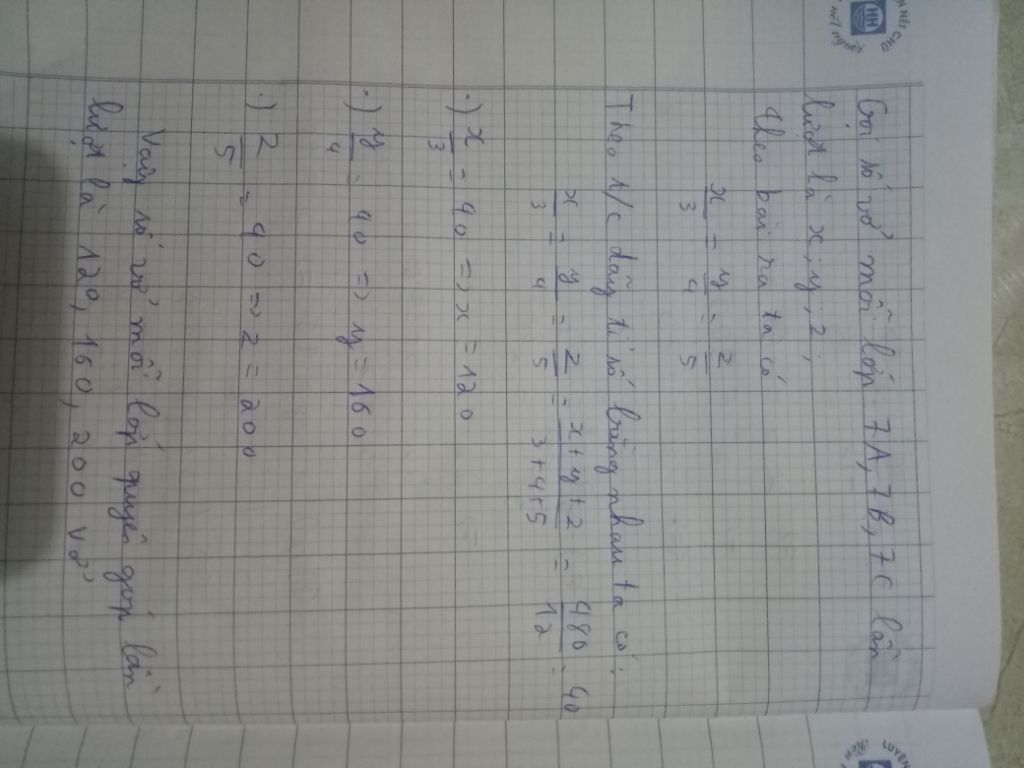 Gọi số vở mỗi lớp 7A, 7B, 7C lần
lượt là x; y; z;
theo bài ra ta có
x/3 = y/4 = z/5
Theo t/c dãy tỉ số bằng nhau ta có:
x/3 = y/4 = z/5 = x+y+z/3+4+5 = 480/12 = 40
·) x/3 = 40 => x = 120
·) y/4 = 40 => y = 160
·) z/5 = 40 => z = 200
Vậy số vở mỗi lớp quyên góp lần
lượt là 120, 160, 200 vở
HN
LUYỆN